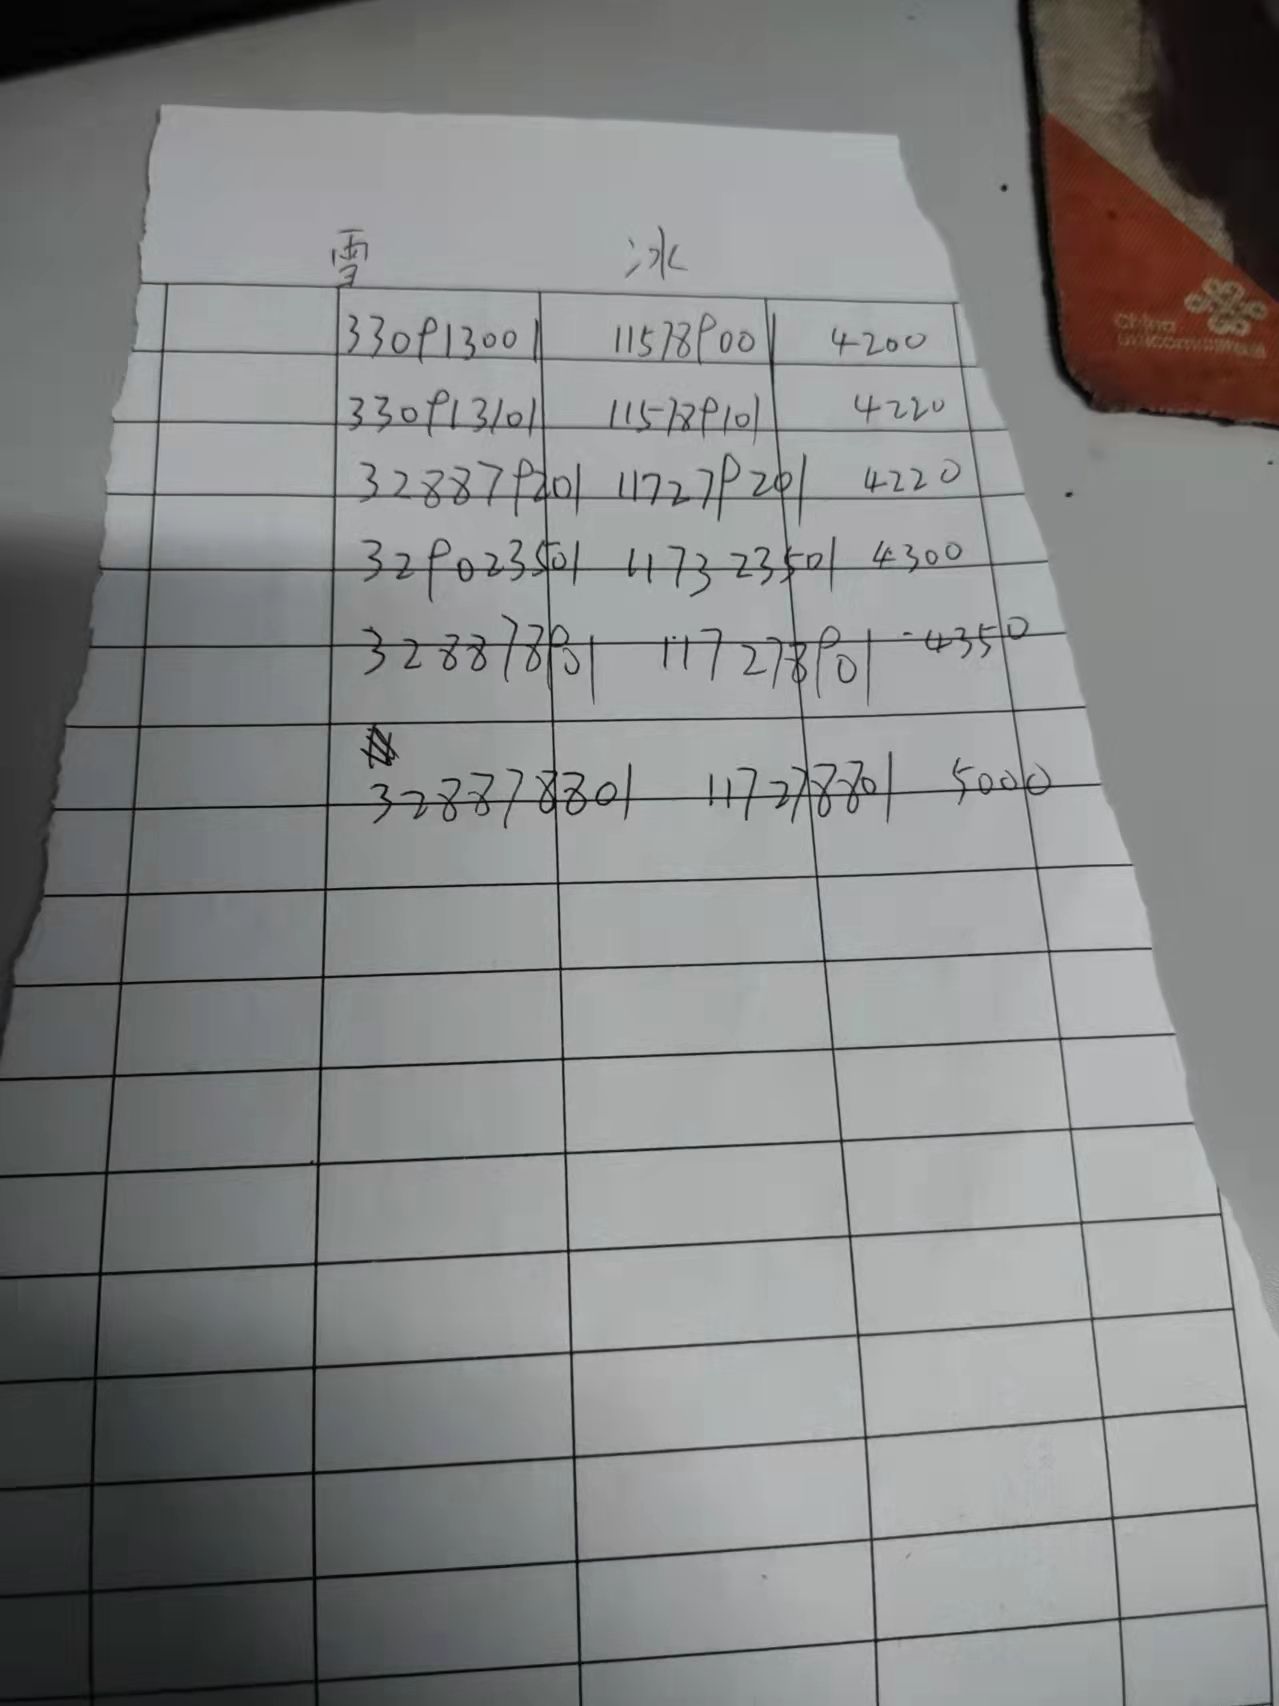 雪 冰
330913001 115789001 4200
330913101 115789101 4220
328879201 117279201 4220
329023501 117323501 4300
328878901 117278901 4350
328878801 117278801 5000
China
unicom